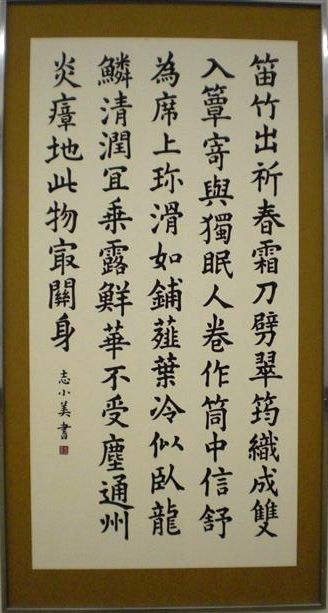 笛竹出祈春霜刀劈翠筠織成雙
入簟寄與獨眠人卷作筒中信舒
為席上珎滑如鋪薤葉冷似臥龍
鱗清潤冝乗露鮮華不受塵通州
炎瘴地此物㝡關身
志小美書